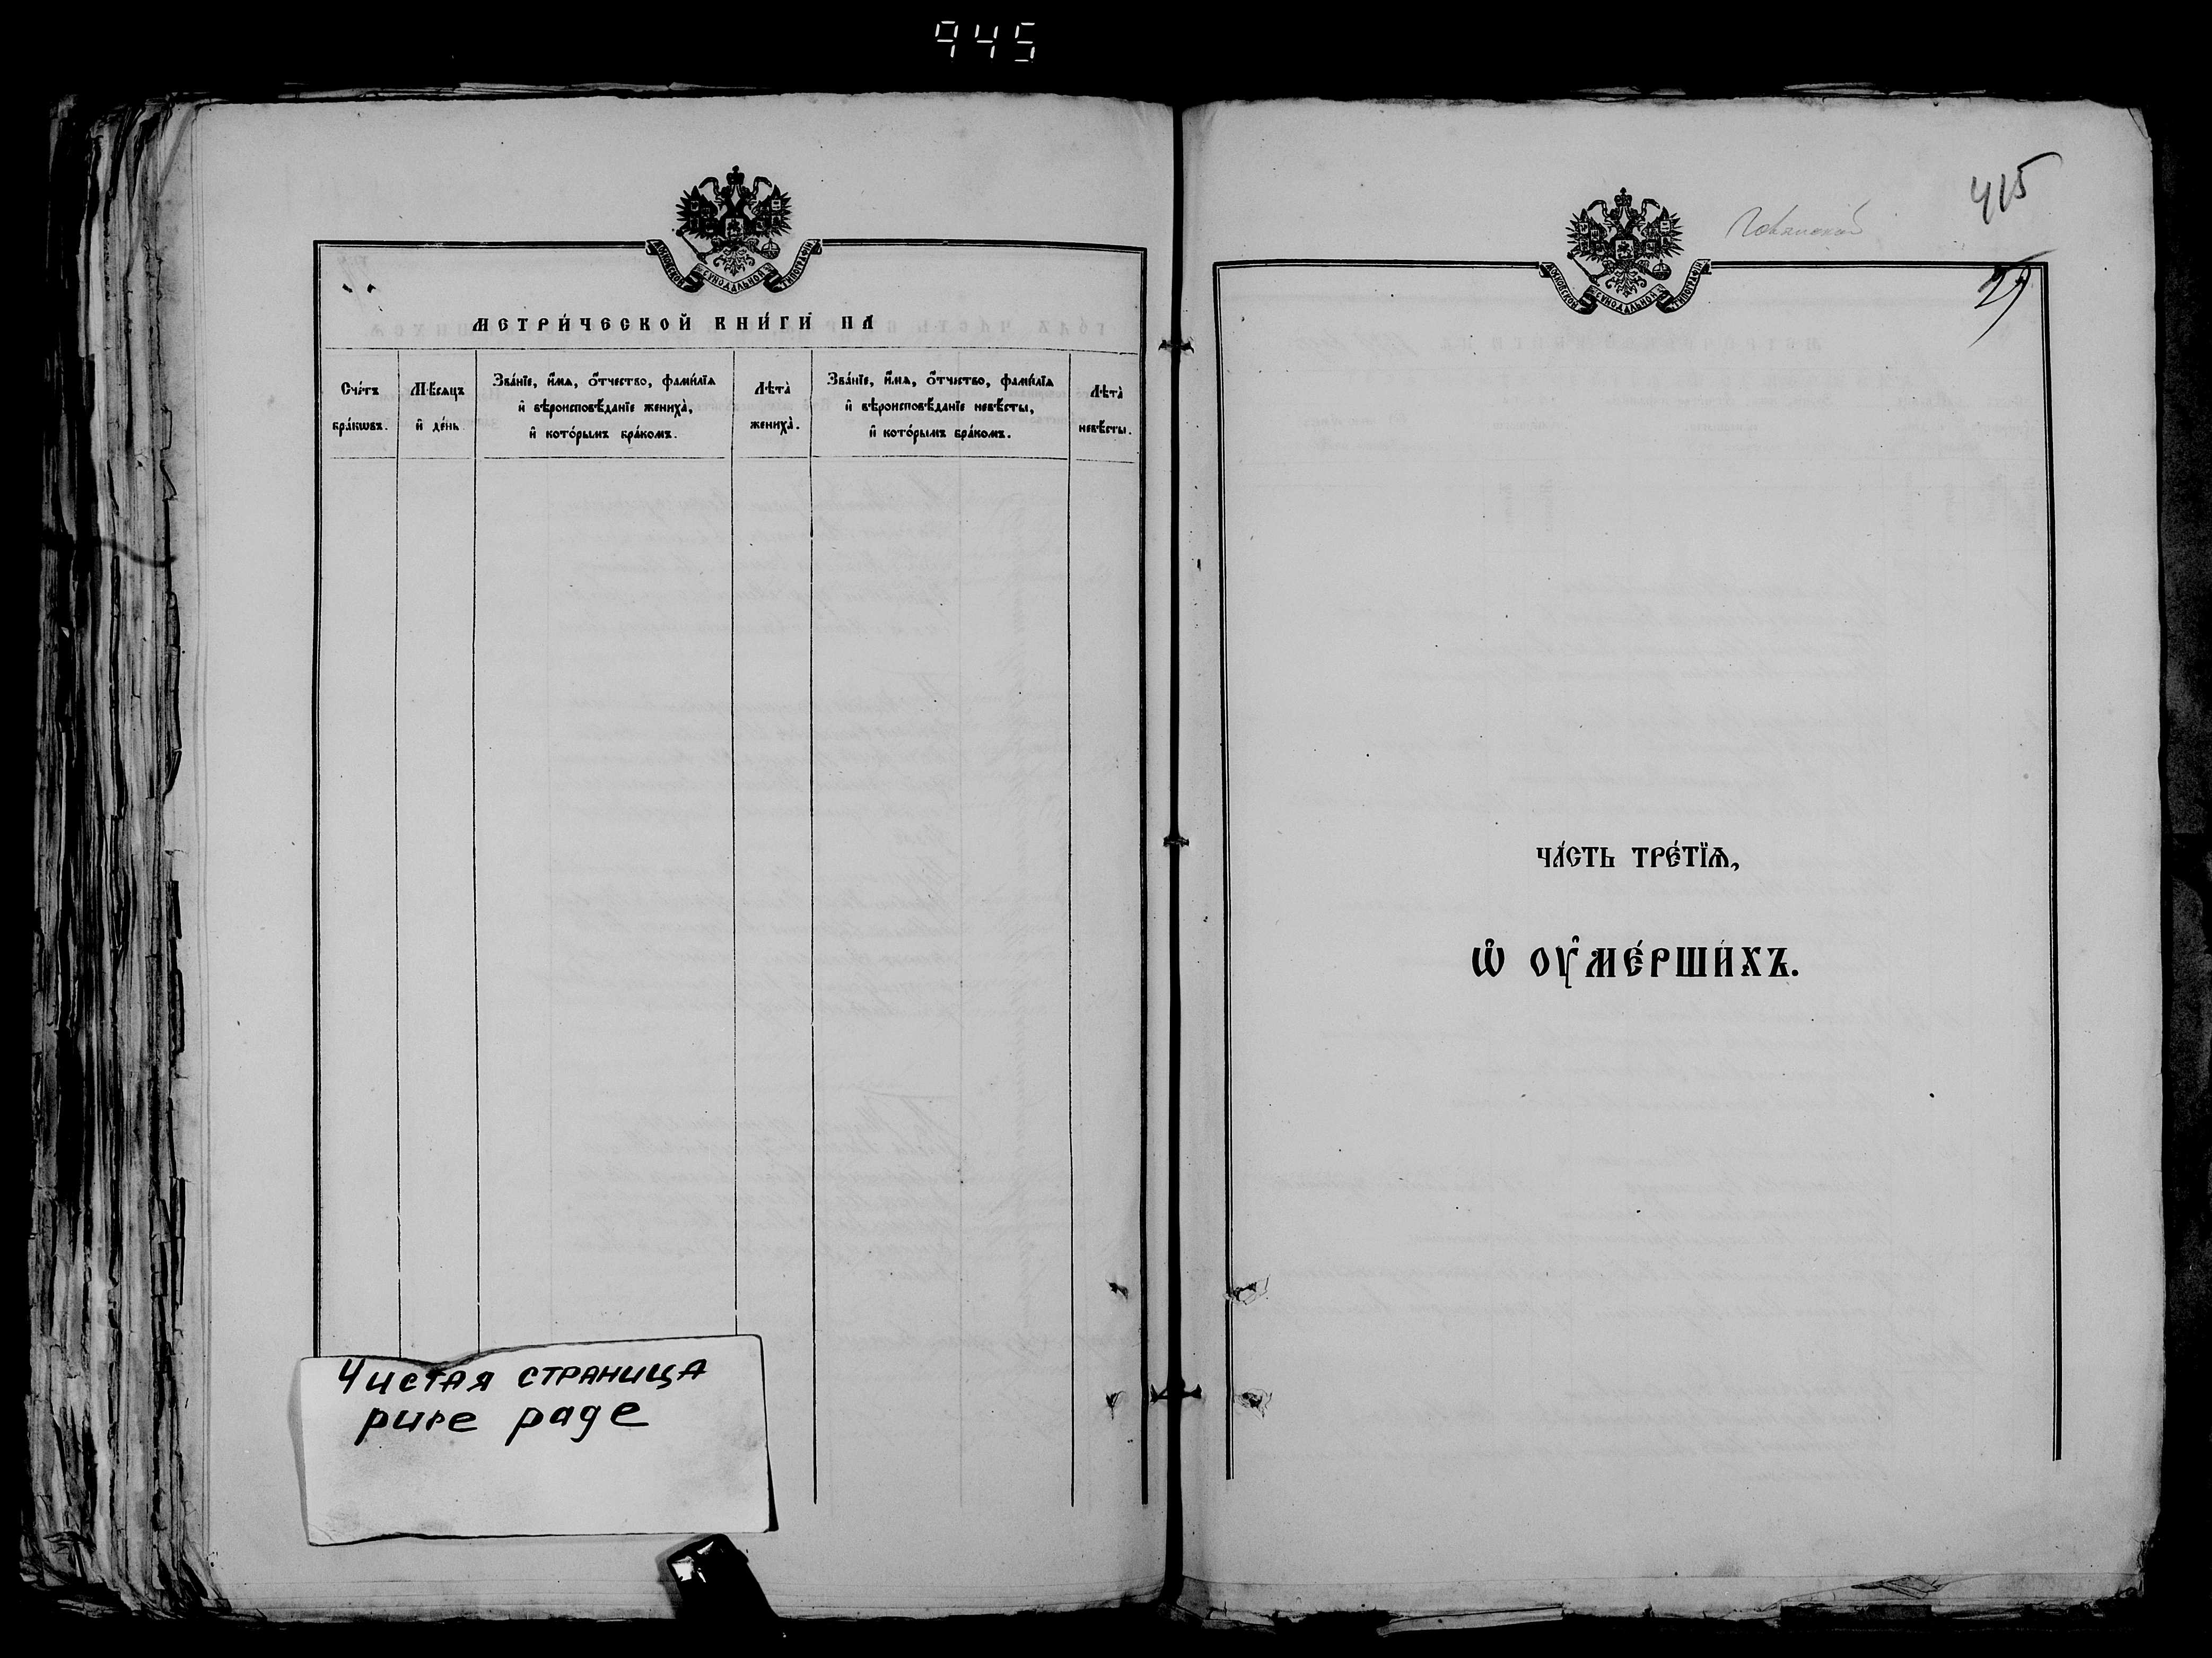 945
МОСКОВСКОЙ СѴНОДАЛЬНОЙ ТИПОГРАФІИ
МЕТРИ́ЧЕСКОЙ КНИ́ГИ НА
Сче́тъ бра́кѡвъ.
Мѣ́сяцъ и҆ де́нь.
Зва́нїе, и҆́мѧ, ѻ҆́тчество, фами́лїѧ
и҆ вѣроисповѣ́данїе жениха̀,
и҆ кото́рымъ бра́комъ.
Лѣта̀ жениха̀.
Зва́нїе, и҆́мѧ, ѻ҆́тчество, фами́лїѧ
и҆ вѣроисповѣ́данїе невѣ́сты,
и҆ кото́рымъ бра́комъ.
Лѣта̀ невѣ́сты.
Чистая страница
pure page
415
МОСКОВСКОЙ СѴНОДАЛЬНОЙ ТИПОГРАФІИ
ЧА́СТЬ ТРЕ́ТЇѦ,
Ѽ ОУ҆МЕ́РШИХЪ.